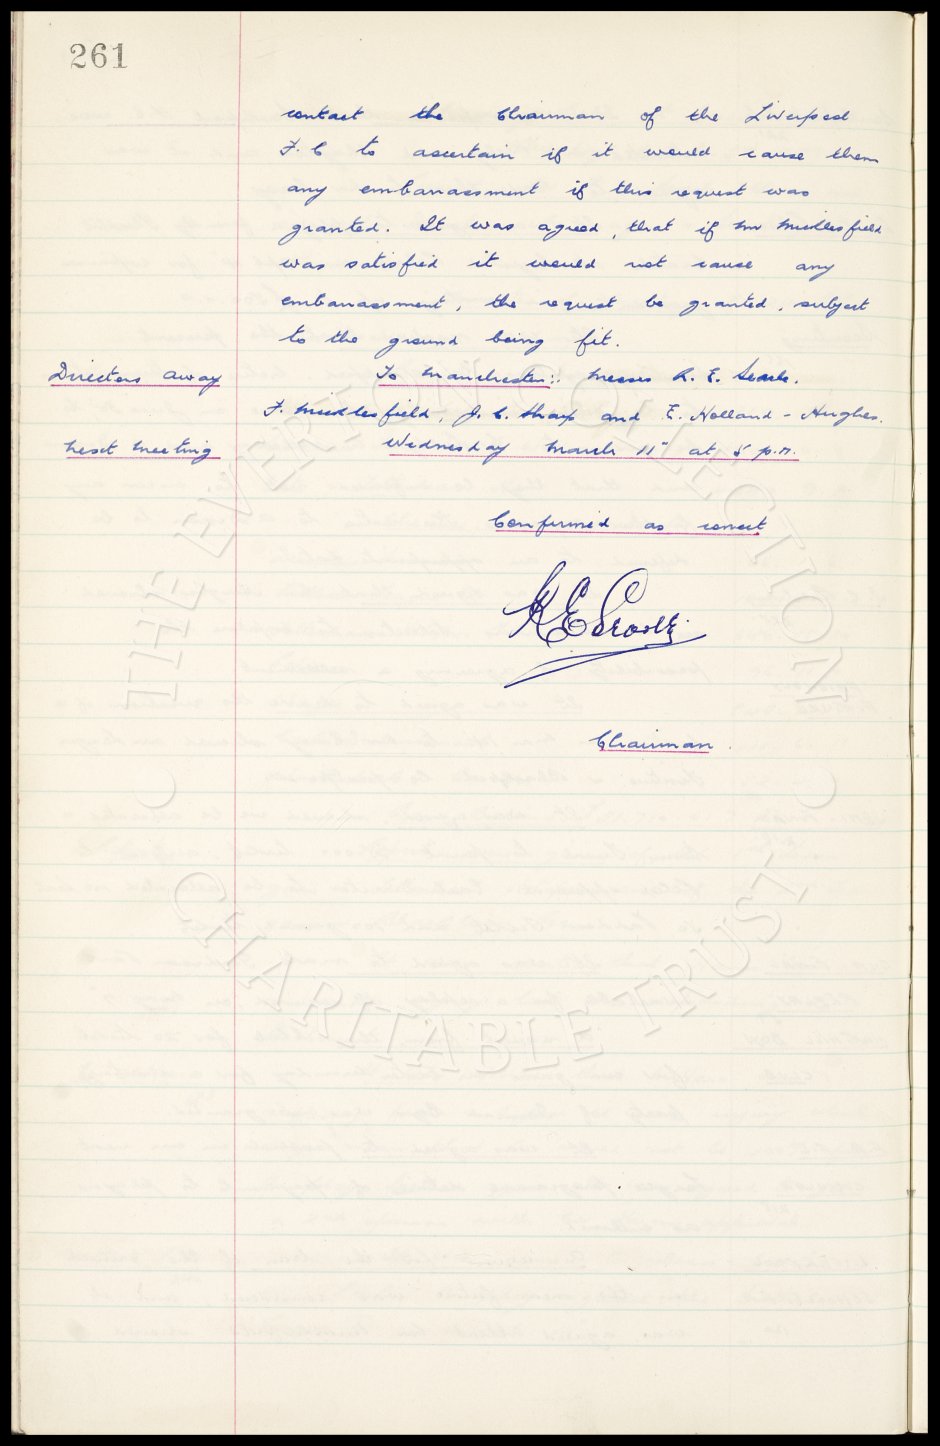 261
contact the Chairman of the Liverpool
F. C to ascertain if it would cause them
any embarrassment if this request was
granted. It was agreed, that if Mr Micklesfield
was satisfied it would not cause any
embarrassment, the request be granted, subject
to the ground being fit.
Directors away To Manchester:. Messrs R. E. Searle.
F. Micklesfield, J. C. Sharp and E. Holland-Hughes.
Next Meeting Wednesday March 11" at 5 p.m.
Confirmed as correct
Chairman.
THE EVERTON COLLECTION
CHARITABLE TRUST